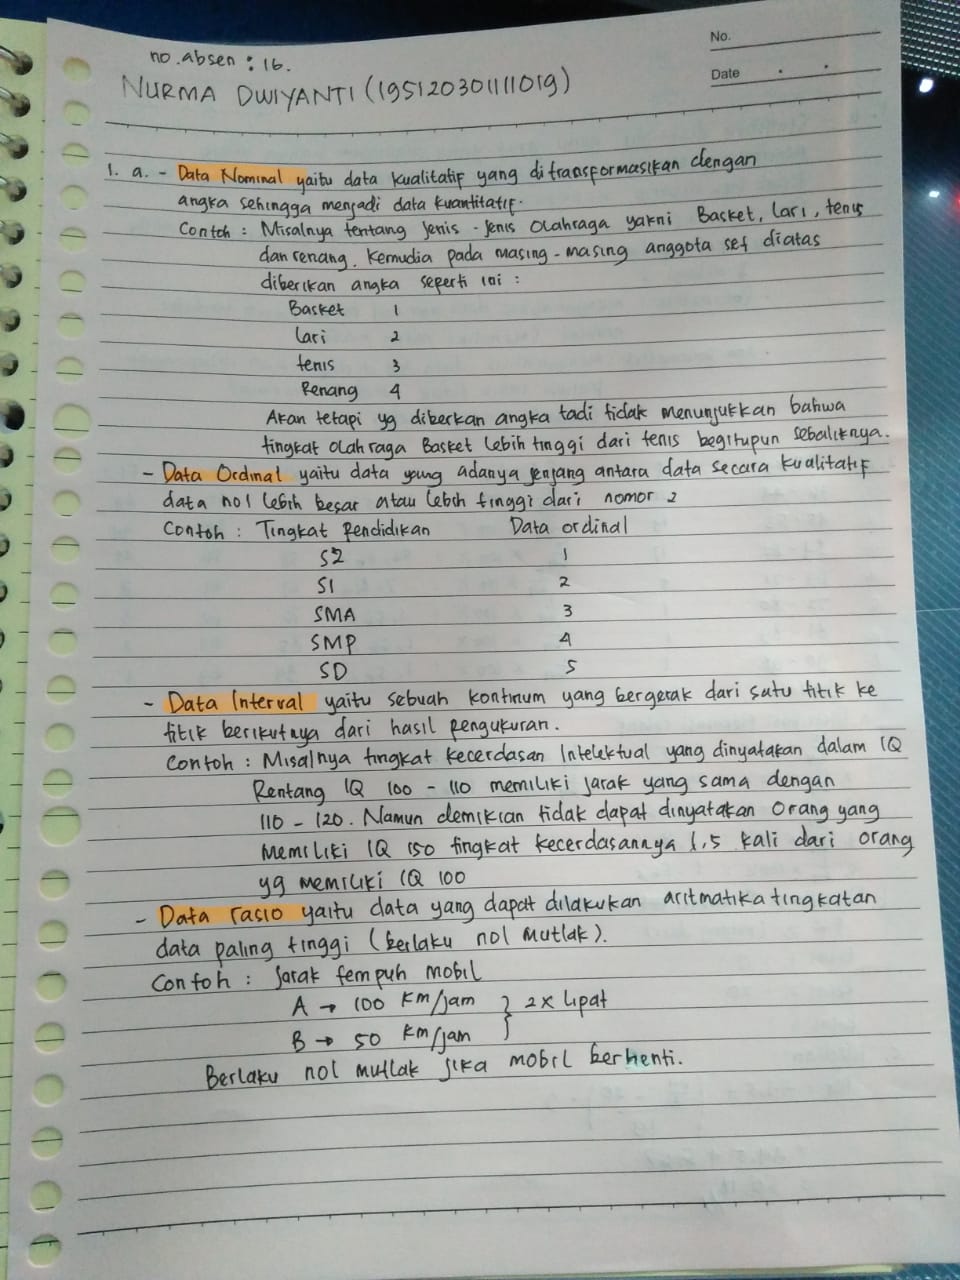 No.
Date
no.absen : 16.
NURMA DWIYANTI (195120301111019)
1. a. - Data Nominal yaitu data kualitatif yang ditransformasikan dengan
angka sehingga menjadi data kuantitatif.
Contoh : Misalnya tentang jenis - jenis Olahraga yakni Basket, lari, tenis
dan renang. Kemudia pada masing-masing anggota set diatas
diberikan angka seperti ini :
Basket 1
Lari 2
tenis 3
Renang 4
Akan tetapi yg diberkan angka tadi tidak menunjukkan bahwa
tingkat olahraga Basket lebih tinggi dari tenis begitupun sebaliknya.
- Data Ordinal yaitu data yang adanya jenjang antara data secara kualitatif
data no 1 lebih besar atau lebih tinggi dari nomor 2
Contoh : Tingkat Pendidikan Data ordinal
S2 1
S1 2
SMA 3
SMP 4
SD 5
- Data Interval yaitu sebuah kontinum yang bergerak dari satu titik ke
titik berikutnya dari hasil pengukuran.
Contoh : Misalnya tingkat kecerdasan Intelektual yang dinyatakan dalam IQ
Rentang IQ 100 - 110 memiliki jarak yang sama dengan
110 - 120. Namun demikian tidak dapat dinyatakan Orang yang
Memiliki IQ 150 tingkat kecerdasannya 1,5 kali dari orang
yg memiliki IQ 100
- Data rasio yaitu data yang dapat dilakukan aritmatika tingkatan
data paling tinggi (berlaku nol mutlak).
Contoh : Jarak tempuh mobil
A → 100 km/jam } 2x lipat
B → 50 km/jam
Berlaku nol mutlak jika mobil berhenti.